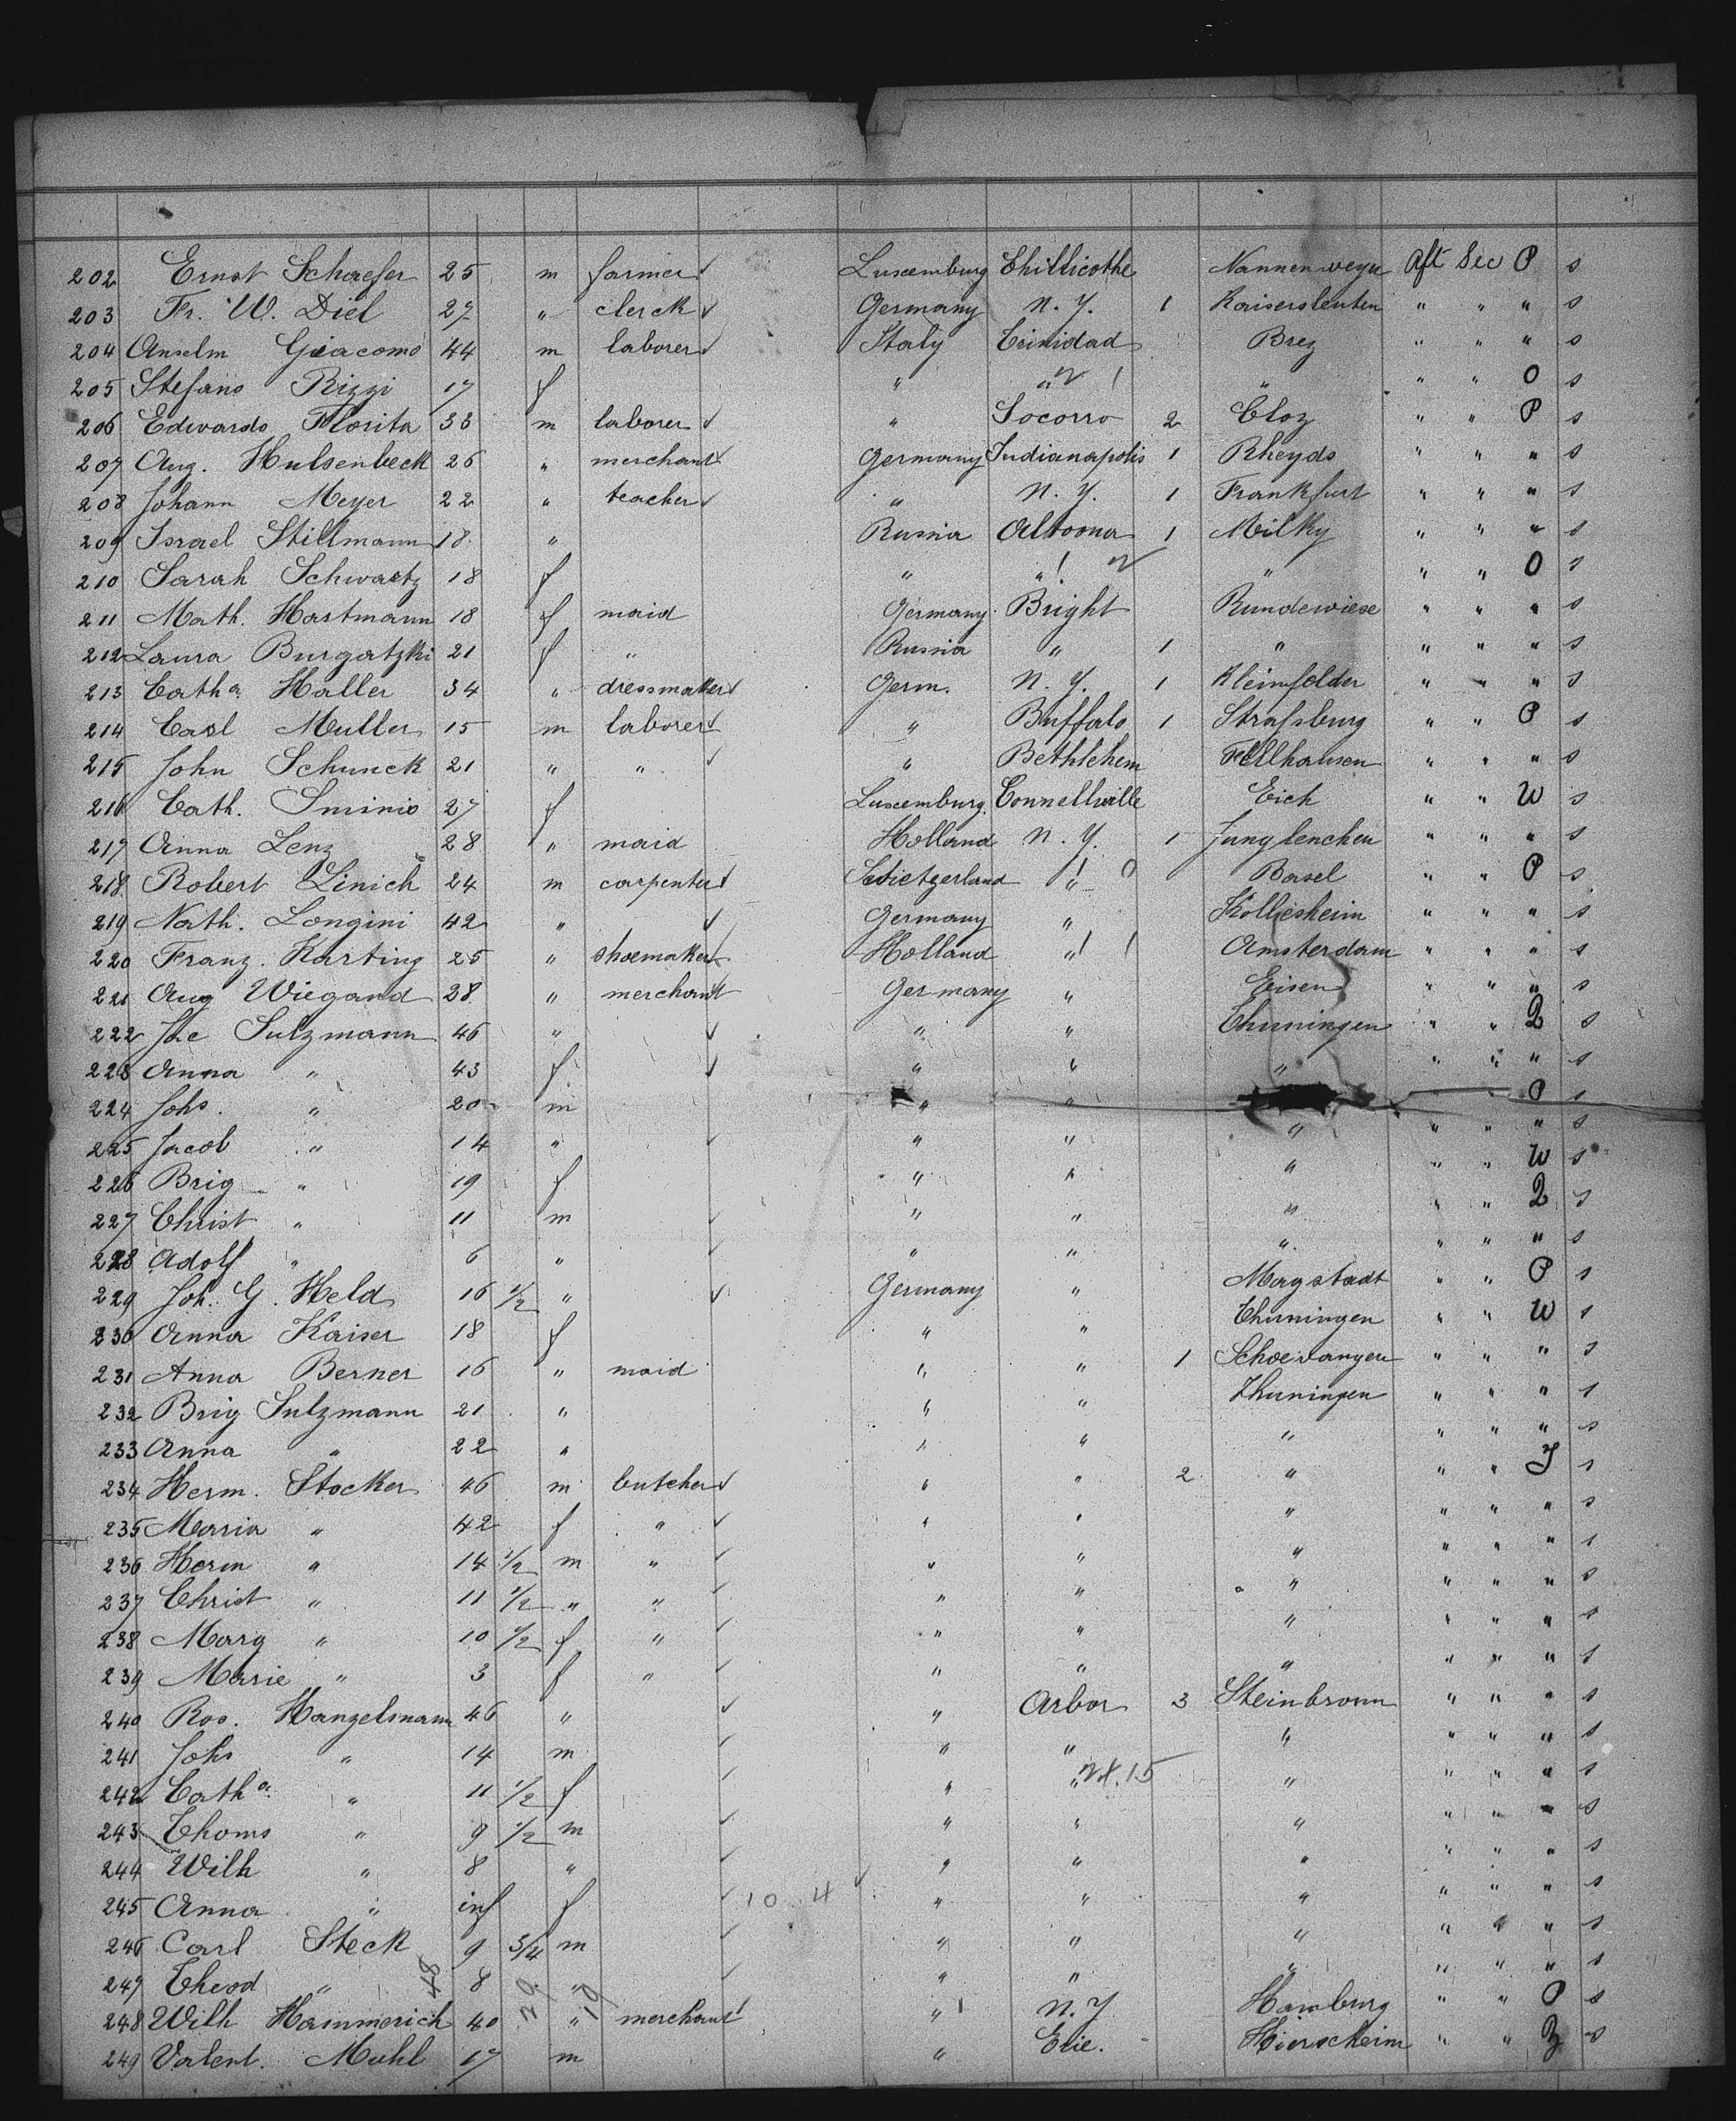 202 Ernst Schaefer 25 m farmer Luxemburg Chillicothe Nannenweyer Aft Sec P s
203 Fr. W. Diel 27 " clerck Germany N. Y. 1 Kaisersleuten " " " s
204 Anselm Giacomo 44 m laborer Italy Trinidad Brez " " " s
205 Stefano Rizzi 17 f " " " " " O s
206 Edwardo Florita 33 m laborer " Socorro 2 Cloz " " P s
207 Aug. Hulsenbeck 26 " merchant Germany Indianapolis 1 Rheyds " " " s
208 Johann Meyer 22 " teacher " N. Y. 1 Frankfurt " " " s
209 Israel Stillmann 18 " Russia Altoona 1 Milky " " " s
210 Sarah Schwartz 18 f " " " " " O s
211 Math. Hartmann 18 f maid Germany Bright Rundewiese " " " s
212 Laura Burgatzki 21 f " Russia " 1 " " " " s
213 Catha Haller 34 " dressmaker Germ. N. Y. 1 Kleinfelder " " " s
214 Carl Muller 15 m laborer " Buffalo 1 Strassburg " " P s
215 John Schunck 21 " " " Bethlehem Fellhausen " " " s
216 Cath. Sminio 27 f Luxemburg Connellville Eich " " W s
217 Anna Lenz 28 " maid Holland N. Y. 1 Junglenchen " " " s
218 Robert Linich 24 m carpenter Schietzerland " Basel " " P s
219 Nath. Longini 42 " Germany " Kolliesheim " " " s
220 Franz. Karting 25 " shoemaker Holland " Amsterdam " " " s
221 Aug Wiegand 28 " merchant Germany " Eisen " " " s
222 Jac Sulzmann 46 " " " Thuningen " " Q s
223 Anna " 43 f " " " " " " s
224 Johs. " 20 m " " P s
225 Jacob " 14 " " " " " " " s
226 Brig " 19 f " " " " " W s
227 Christ " 11 m " " " " " Q s
228 Adolf " 6 " " " " " " " s
229 Joh. G. Held 16 1/2 " Germany " Magstadt " " P s
230 Anna Kaiser 18 f " " Thuningen " " W s
231 Anna Berner 16 " maid " " 1 Schoevangen " " " s
232 Brig Sulzmann 21 " " " Thuningen " " " s
233 Anna " 22 " " " " " " " s
234 Herm. Stocker 46 m butcher " " 2 " " " J s
235 Maria " 42 f " " " " " " " s
236 Herm " 14 1/2 m " " " " " " " s
237 Christ " 11 1/2 " " " " " " " " s
238 Marg " 10 1/2 f " " " " " " " s
239 Marie " 3 f " " " " " " " s
240 Ros. Hanzelmann 46 " " Arbor 3 Steinbronn " " " s
241 Johs " 14 m " " " " " " s
242 Catha " 11 1/2 f " " " " " " s
243 Thoms " 9 1/2 m " " " " " " s
244 Wilh " 8 " " " " " " " s
245 Anna " inf f 10 4 " " " " " " s
246 Carl Steck 9 3/4 m " " " " " " s
247 Theod " 8 " " " " " " " s
248 Wilh Hammerich 40 " merchant " N. Y Hamburg " " P s
249 Valent. Muhl 17 m " Erie. Hierscheim " " s